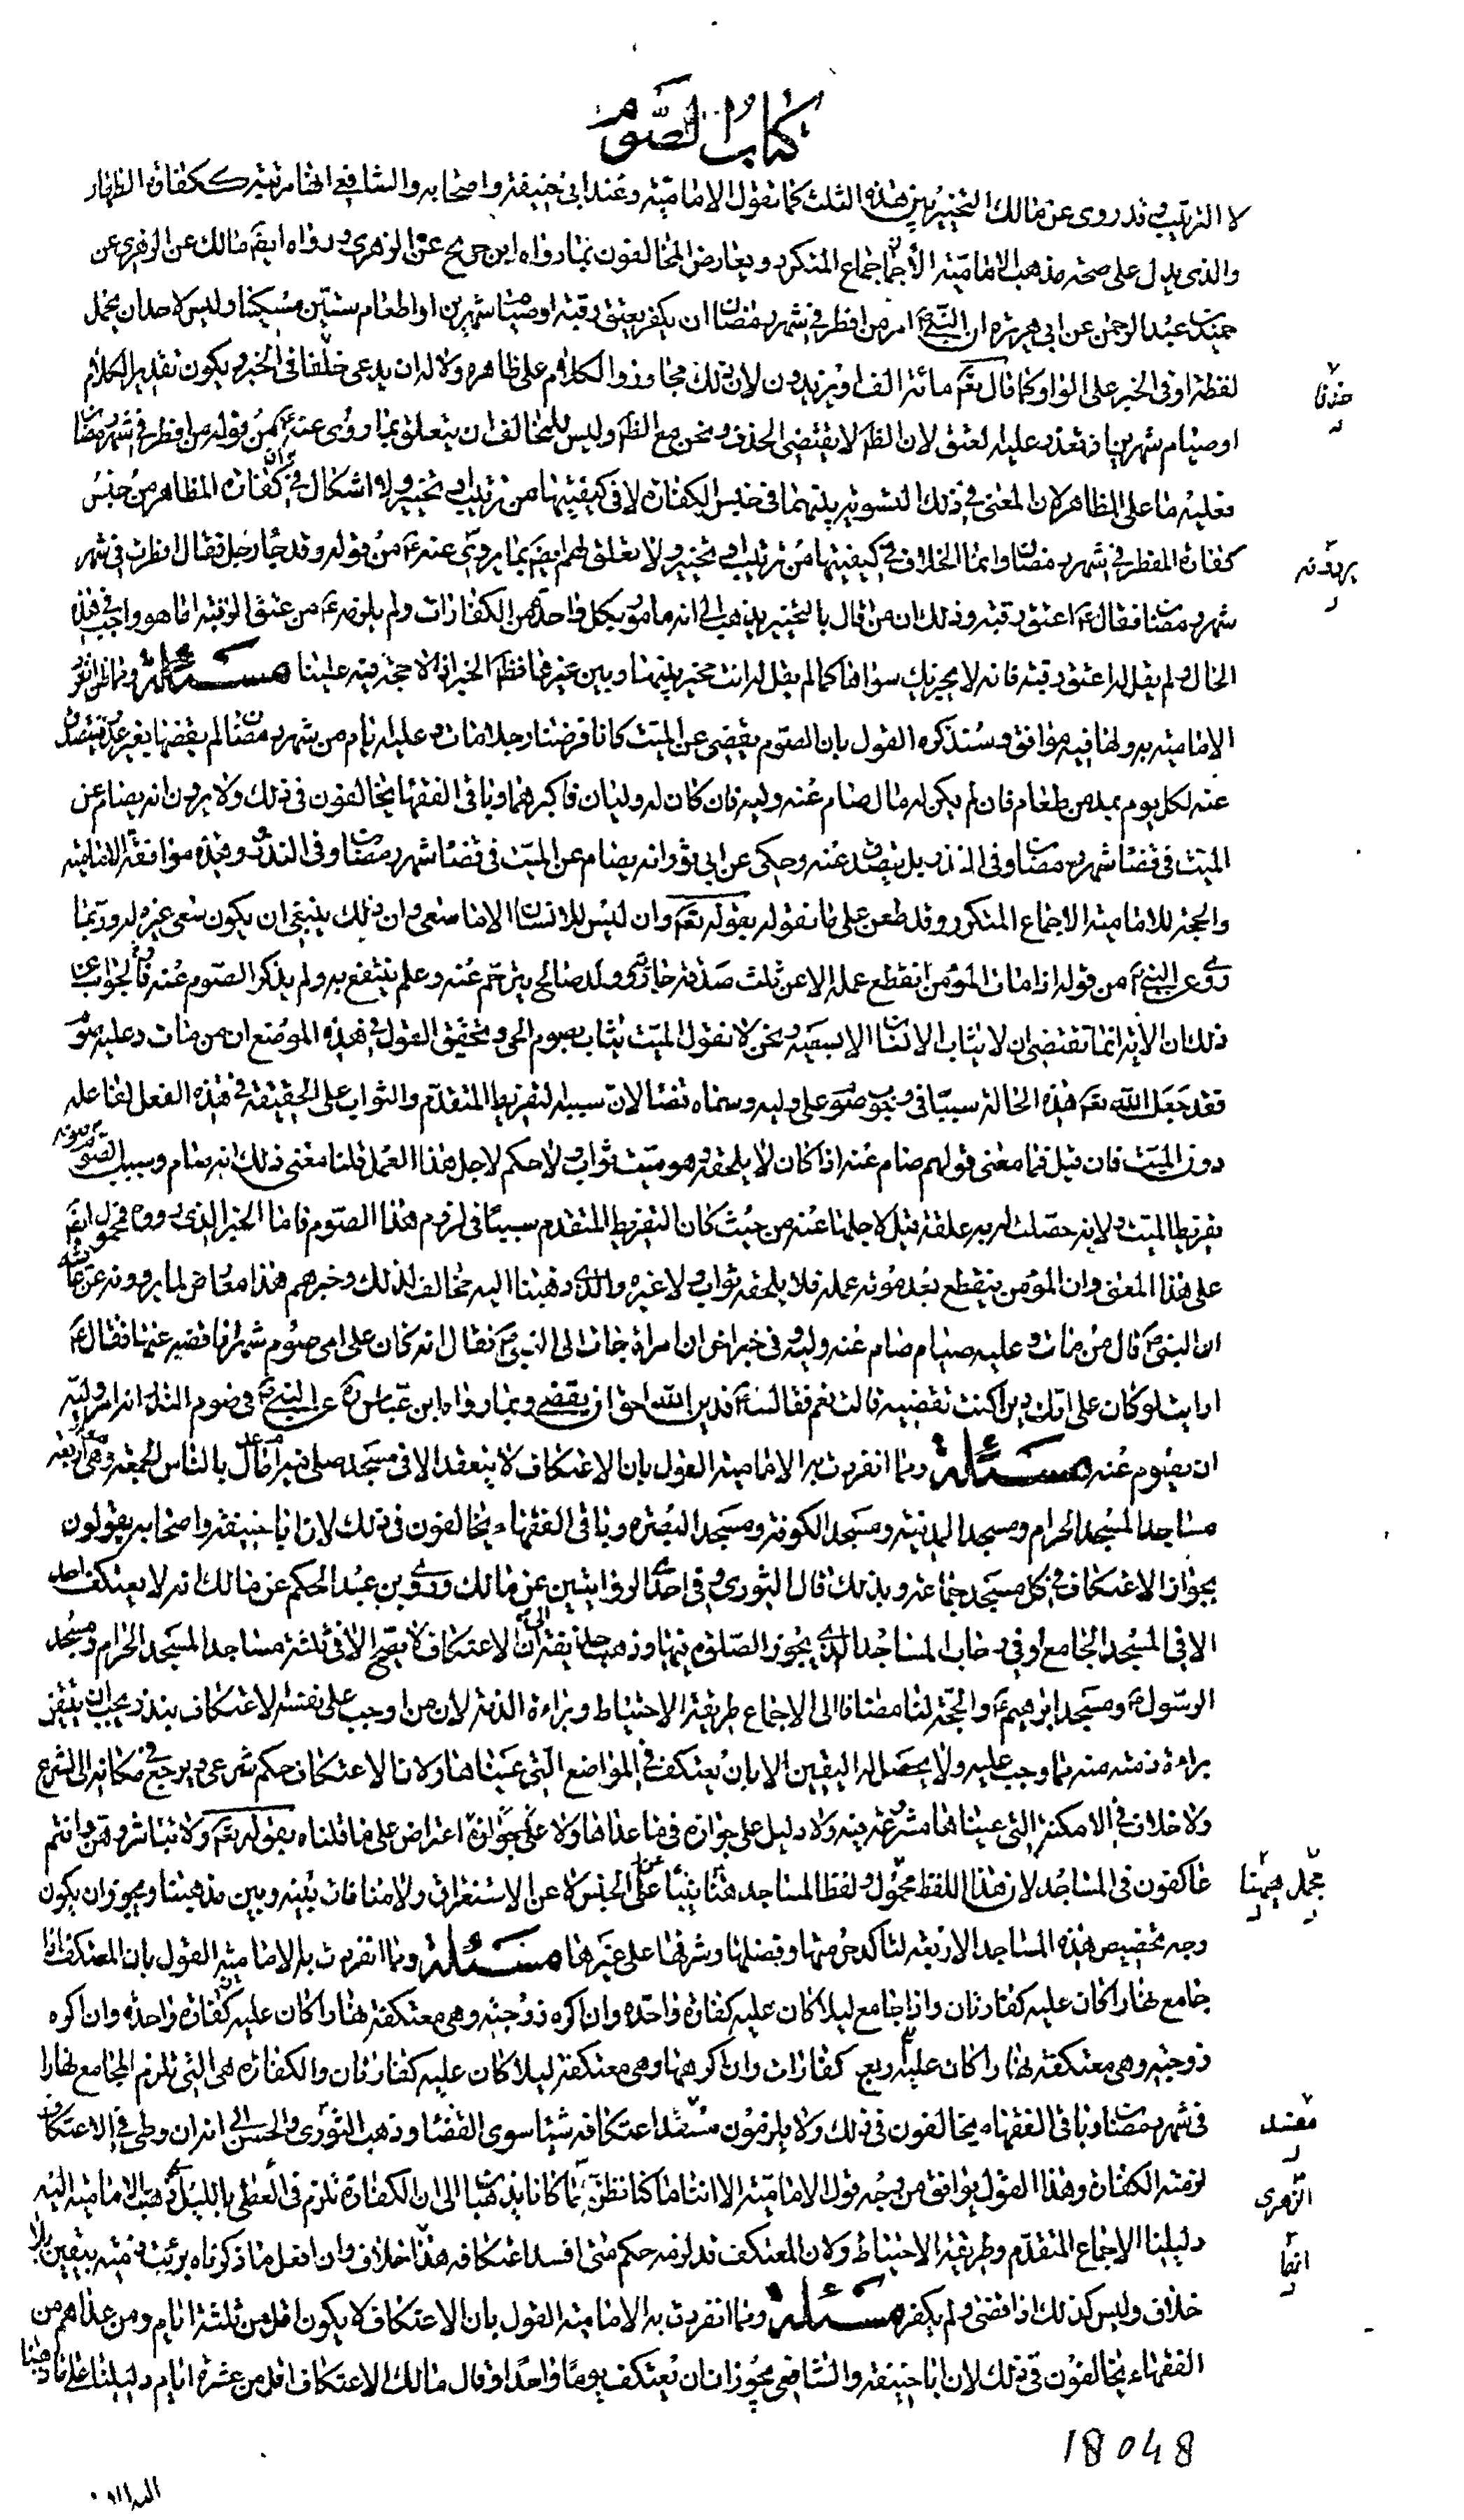 كتاب الصوم
لا الترتيب وقد روى عن مالك التخيير بين هذه الثلث كما تقول الامامية وعند ابى حنيفة واصحابه والشافعى انها مرتبة ككفارة الظهار
والذى يدل على صحة مذهب الامامية الاجماع المتكرر ويعارض المخالفون بما رواه ابن جريح عن الزهرى ورواه ايضا مالك عن الزهرى عن
حميد بن عبد الرحمن عن ابى هريرة ان النبى ص امر من افطر فى شهر رمضان ان يكفر بعتق رقبة او صيام شهرين او اطعام ستين مسكينا وليس لاحد ان يحمل
لفظة او فى الخبر على الواو كما قال تعالى مائة الف او يزيدون لان ذلك مجاز والكلام على ظاهره ولا له ان يدعى حذفا فى الخبر ويكون تقدير الكلام
او صيام شهرين ان تعذر عليه العتق لان الظ لا يقتضى الحذف ونحن مع الظ وليس للمخالف ان يتعلق بما روى عنه ع من قوله من افطر فى شهر رمضان
فعليه ما على المظاهر لان المعنى فى ذلك التسوية بينهما فى جنس الكفارة لا فى كيفيتها من ترتيب او تخيير ولا اشكال فى ان كفارة المظاهر من جنس
كفارة المفطر فى شهر رمضان وانما الخلاف فى كيفيتها من ترتيب او تخيير ولا تعلق لهم ايضا بما يروى عنه ع من قوله وقد جاء رجل فقال افطرت فى شهر
شهر رمضان فقال ع اعتق رقبة وذلك ان من قال بالتخيير يذهب الى انه مامور بكل واحدة من الكفارات ولم يامره ع من عتق الرقبة الا ما هو واجب فى هذه
الحال ولم يقل له اعتق رقبة فانه لا يجزيك سواها كما لم يقل له انت مخير بينها وبين غيرها فظاهر الخبر انه لا حجة فيه علينا مسئلة ومما ظن انفراد
الامامية به ولها فيه موافق وسنذكره القول بان الصوم يقضى عن الميت كانا فرضنا رجلا مات وعليه ايام من شهر رمضان لم يقضها بغير عذر فيتصدق
عنه لكل يوم بمد من طعام فان لم يكن له مال صام عنه وليه فان كان له وليان فاكبرهما وباقى الفقهاء يخالفون فى ذلك ولا يرون انه يصام عن
الميت فى قضاء شهر رمضان وفى النذر بل يتصدق عنه وحكى عن ابى ثور انه يصام عن الميت فى قضاء شهر رمضان وفى النذر وهذه موافقة للامامية
والحجة للامامية الاجماع المتكرر وقد طعن على ما نقوله بقوله تعالى وان ليس للانسان الا ما سعى وان ذلك ينبغى ان يكون سعى غيره له وربما
روى عن النبى ص من قوله اذا مات المؤمن انقطع عمله الا عن ثلث صدقة جارية وولد صالح يترحم عنه وعلم ينتفع به ولم يذكر الصوم عنه والجواب عن
ذلك ان الاية انما تقتضى ان لا يثاب الانسان الا بسعيه ونحن لا نقول الميت يثاب بصوم الحى وتحقيق القول فى هذه الموضع ان من مات وعليه صوم
فقد جعل الله تعالى هذه الحالة سببا فى وجوب صوم على وليه وسماه قضاء لان سببه التفريط المتقدم والثواب على الحقيقة فى هذه الفعل لفاعله
دون الميت فان قيل فما معنى قولهم صام عنه اذا كان لا يلحقه وهو ميت ثواب ولا حكم لاجل هذا العمل قلنا معنى ذلك انه صام وسبب الصوم
تفريط الميت ولانه حصلت له به علقة قيل لاجلها عنه من حيث كان التفريط المتقدم سببا فى لزوم هذا الصوم فاما الخبر الذى رووه فمحمول ايضا
على هذا المعنى وان المؤمن ينقطع بعد موته عمله فلا يلحقه ثواب ولا غيره والذى ذهبنا اليه مخالف لذلك وخبرهم هذا معارض لما يروونه عن عائشة
ان النبى ص قال من مات وعليه صيام صام عنه وليه وفى خبر اخر ان امراة جاءت الى النبى ص فقال انه كان على امى صوم شهر افاقضيه عنها فقال ع
ارايت لو كان على امك دين اكنت تقضيه قالت نعم فقال ع فدين الله احق ان يقضى وبما رواه ابن عباس ره عن النبى ص فى صوم النذر انه امر وليه
ان يصوم عنه مسئلة ومما انفردت به الامامية القول بان الاعتكاف لا ينعقد الا فى مسجد صلى فيه امام عدل بالناس الجمعة وهى اربعة
مساجد المسجد الحرام ومسجد المدينة ومسجد الكوفة ومسجد البصرة وباقى الفقهاء يخالفون فى ذلك لان ابا حنيفة واصحابه يقولون
بجواز الاعتكاف فى كل مسجد جماعة وبذلك قال الثورى وفى احدى الروايتين عن مالك وروى بن عبد الحكم عن مالك انه لا يعتكف احد
الا فى المسجد الجامع او فى رحاب المساجد التى يجوز الصلوة فيها وذهب حذيفة الى ان الاعتكاف لا يصح الا فى ثلثة مساجد المسجد الحرام ومسجد
الرسول ص ومسجد ابرهيم ع والحجة لنا مضافا الى الاجماع طريقة الاحتياط وبراءة الذمة لان من اوجب على نفسه الاعتكاف بنذر يجب ان يتيقن
براءة ذمته منه مما وجب عليه ولا يحصل له اليقين الا بان يعتكف فى المواضع التى عيناها ولان الاعتكاف حكم شرعى ويرجع فى مكانه الى الشرع
ولا خلاف فى الامكنة التى عيناها مشروعة فيه ولا دليل على جوازه فيما عداها ولا على جوازه اعتراض على ما قلناه بقوله تعالى ولا تباشروهن وانتم
عاكفون فى المساجد لان هذا اللفظ محمول ولفظ المساجد هنا ينبئ عن الجنس لا عن الاستغراق ولا منافات بينه وبين مذهبنا ويجوز ان يكون
وجه تخصيص هذه المساجد الاربعة لتاكد حرمتها وفضلها وشرفها على غيرها مسئلة ومما انفردت به الامامية القول بان المعتكف اذا
جامع نهارا كان عليه كفارتان واذا جامع ليلا كان عليه كفارة واحدة وان اكره زوجته وهى معتكفة نهارا كان عليه كفارة واحدة وان اكره
زوجته وهى معتكفة نهارا كان عليه اربع كفارات وان اكرهها وهى معتكفة ليلا كان عليه كفارتان والكفارة هى التى تلزم المجامع نهارا
فى شهر رمضان وباقى الفقهاء يخالفون فى ذلك ولا يلزمون مفسد اعتكافه شيئا سوى القضاء وذهب الثورى والحسن الى انه ان وطى فى الاعتكاف
لزمته الكفارة وهذا القول يوافق من وجه قول الامامية الا اننا ما كنا نظن انهما كانا يذهبان الى ان الكفارة تلزم فى الوطى بالليل كما ذهب الامامية اليه
دليلنا الاجماع المتقدم وطريقة الاحتياط ولان المعتكف قد لزمه حكم متى افسد اعتكافه بلا خلاف وان افعل ما ذكرناه برئت ذمته بيقين بلا
خلاف وليس كذلك اذا قضى ولم يكفر مسئلة ومما انفردت به الامامية القول بان الاعتكاف لا يكون اقل من ثلثة ايام ومن عداهم من
الفقهاء يخالفون فى ذلك لان ابا حنيفة والشافعى يجوزان ان يعتكف يوما واحدا وقال مالك لا اعتكاف اقل من عشرة ايام دليلنا على ما ذهبنا
حذفا
يروونه
مجمل هيهنا
مفسد
الزهرى
انهما
18048